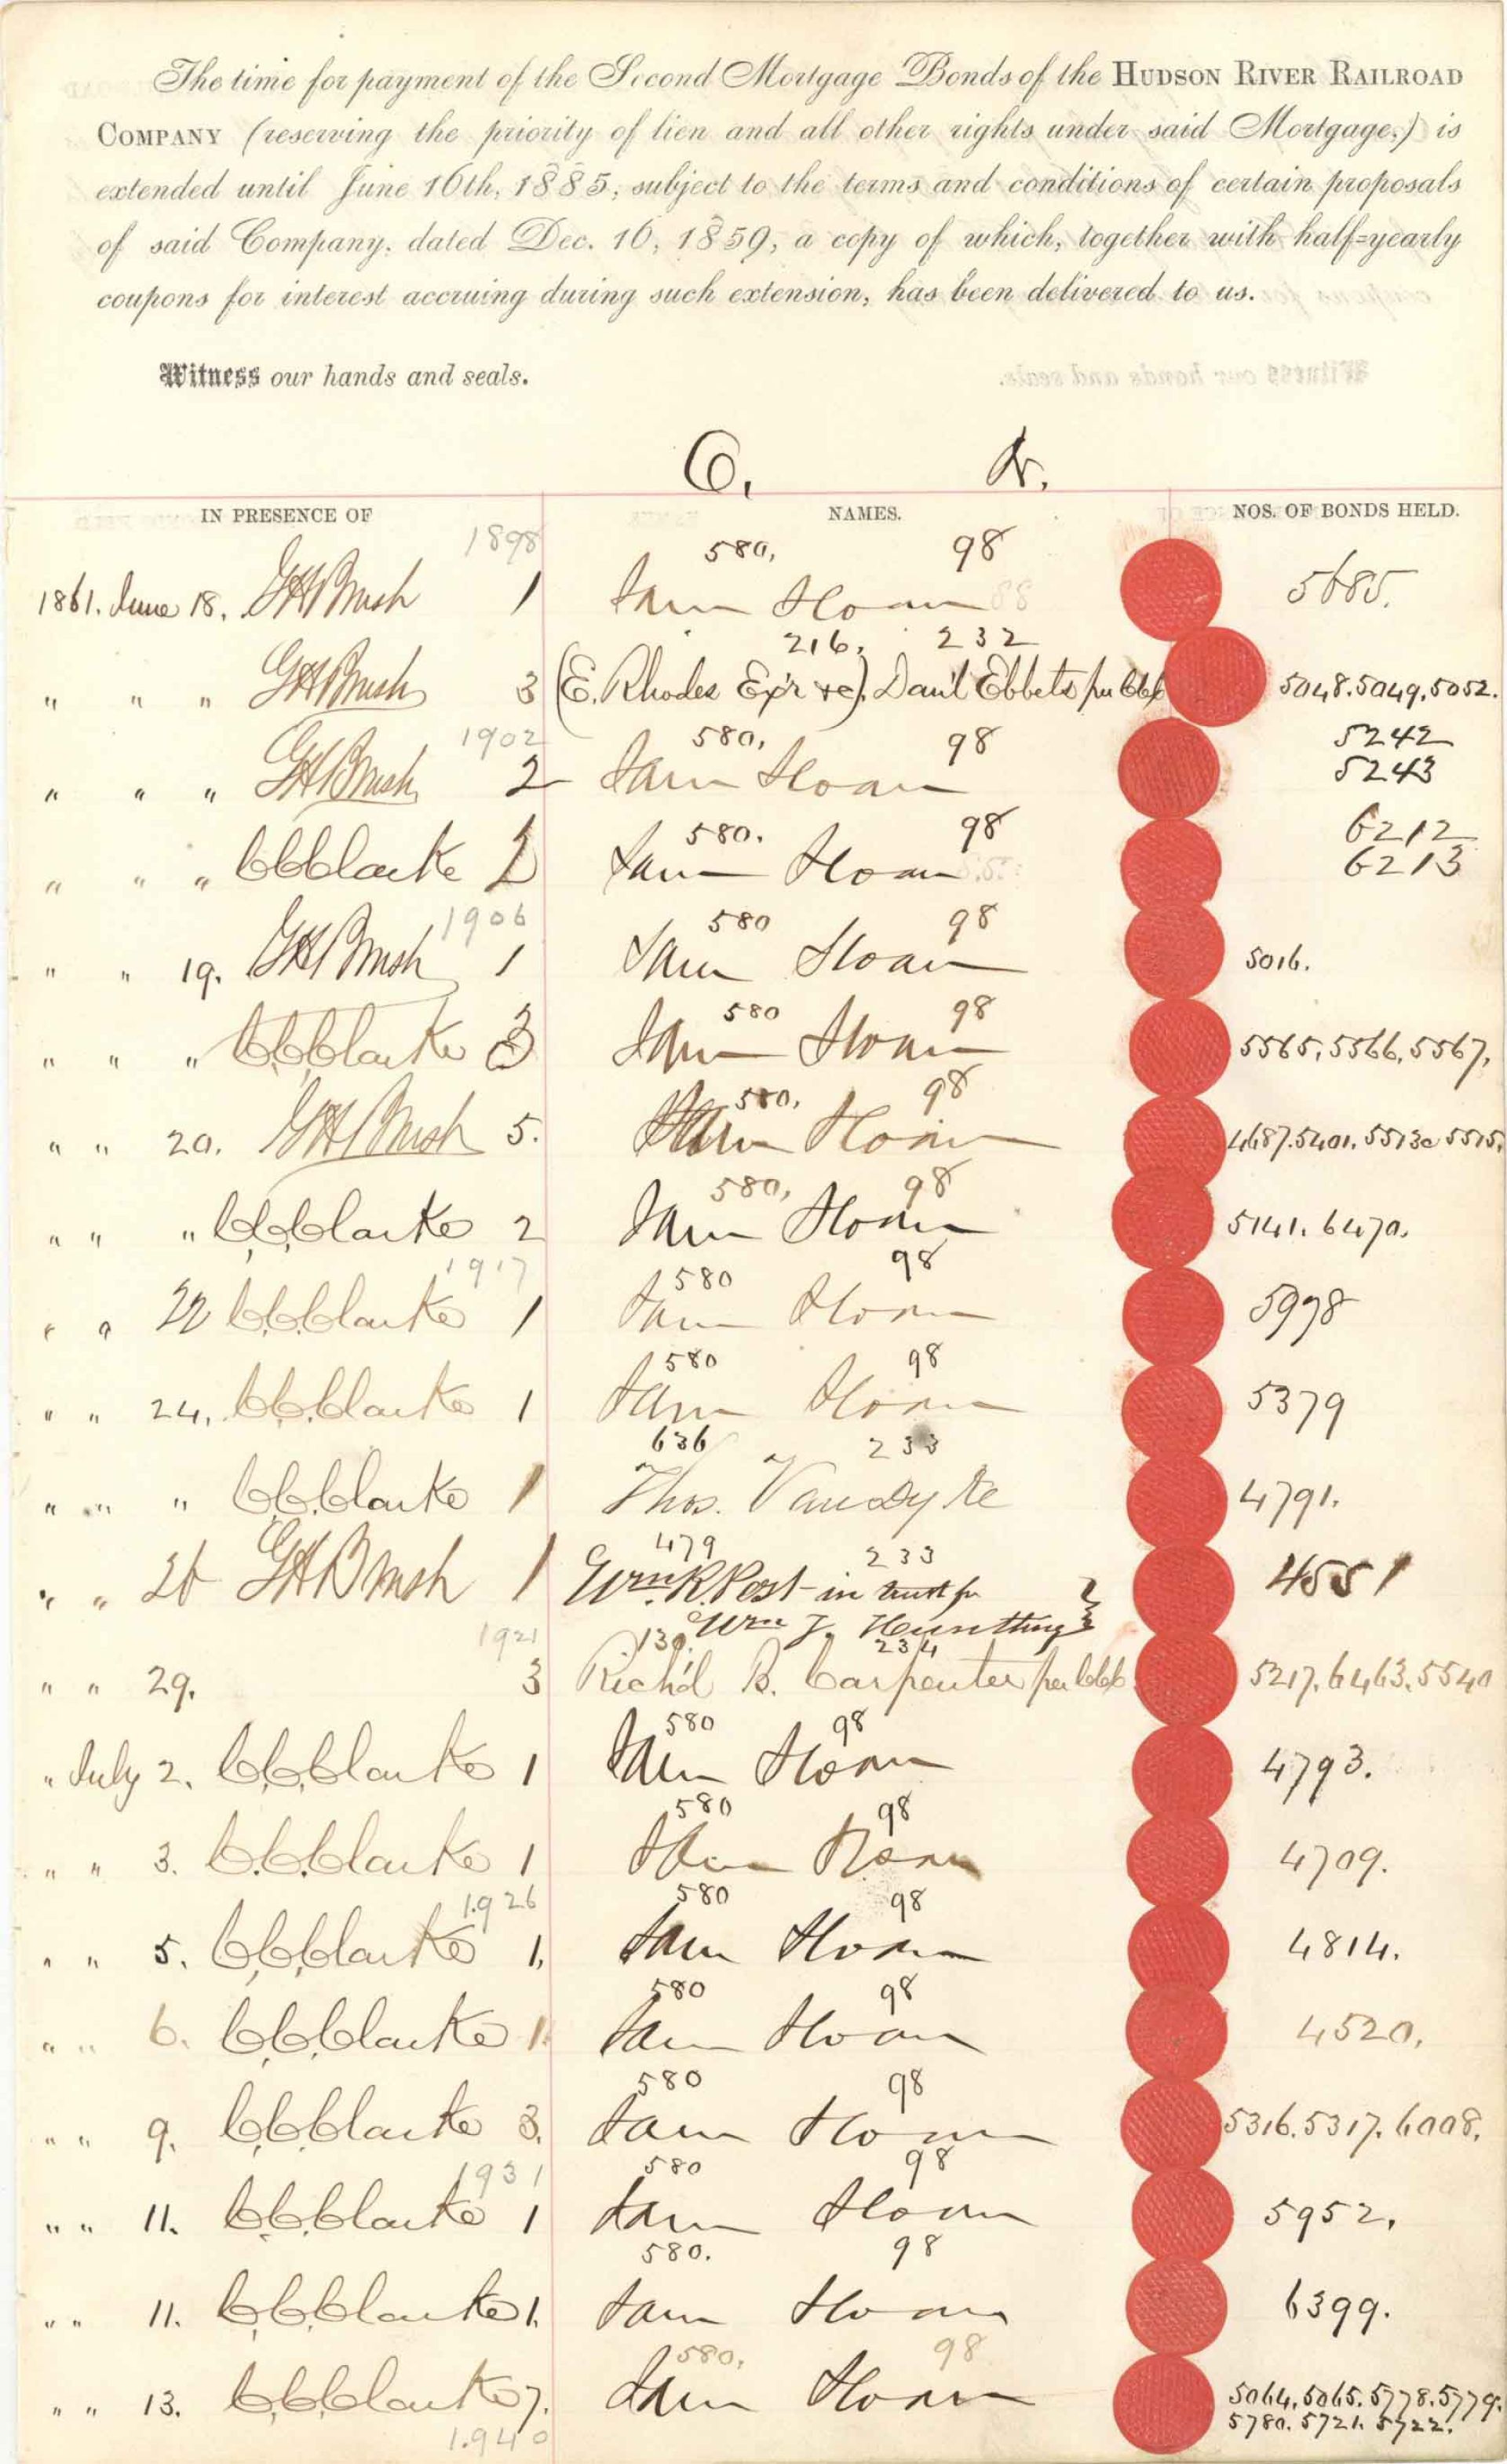 The time for payment of the Second Mortgage Bonds of the HUDSON RIVER RAILROAD
COMPANY (reserving the priority of lien and all other rights under said Mortgage,) is
extended until June 16th, 1885, subject to the terms and conditions of certain proposals
of said Company, dated Dec. 10, 1859, a copy of which, together with half-yearly
coupons for interest accruing during such extension, has been delivered to us.
Witness our hands and seals.
C. Dr.
IN PRESENCE OF NAMES. NOS. OF BONDS HELD.
1898 580, 98
1861. June 18. GHBrush 1 Sam Sloan 5685.
216. 232
" " " GHBrush 3 (E. Rhodes Ex'r &c). Dan'l Ebbets per CCC 5048. 5049, 5052.
1902 580, 98 5242
" " " GHBrush 2 Sam Sloan 5243
580. 98 6212
" " " CCClarke 2 Sam Sloan 6213
1906 580 98
" " 19. GHBrush 1 Sam Sloan 5016.
580 98
" " " C.C.Clarke 3 Sam Sloan 5565, 5566, 5567,
580, 98
" " 20. GHBrush 5. Sam Sloan 4687. 5401. 5513 @ 5515.
580, 98
" " " C.C.Clarke 2 Sam Sloan 5141. 6470.
1917 580 98
" " 22 C.C.Clarke 1 Sam Sloan 5978
580 98
" " 24, C.C.Clarke 1 Sam Sloan 5379
636 233
" " " C.C.Clarke 1 Thos. Van Dyke 4791.
479 233
" " 26 GHBrush 1 Wm. R. Post - in trust for 4551
Wm J. Huntting
1921 130. 234
" " 29. 3 Rich'd B. Carpenter per CCC 5217. 6463. 5540
580 98
" July 2. C.C.Clarke 1 Sam Sloan 4793.
580 98
" " 3. C.C.Clarke 1 Sam Sloan 4709.
1926 580 98
" " 5. C.C.Clarke 1, Sam Sloan 4814.
580 98
" " 6. C.C.Clarke 1. Sam Sloan 4520.
580 98
" " 9. C.C.Clarke 3. Sam Sloan 5316. 5317. 6008.
1931 580 98
" " 11. C.C.Clarke 1 Sam Sloan 5952.
580. 98
" " 11. C.C.Clarke 1. Sam Sloan 6399.
580, 98
" " 13. C.C.Clarke 7. Sam Sloan 5064. 5065. 5778. 5779.
1.940 5780. 5721. 5722.